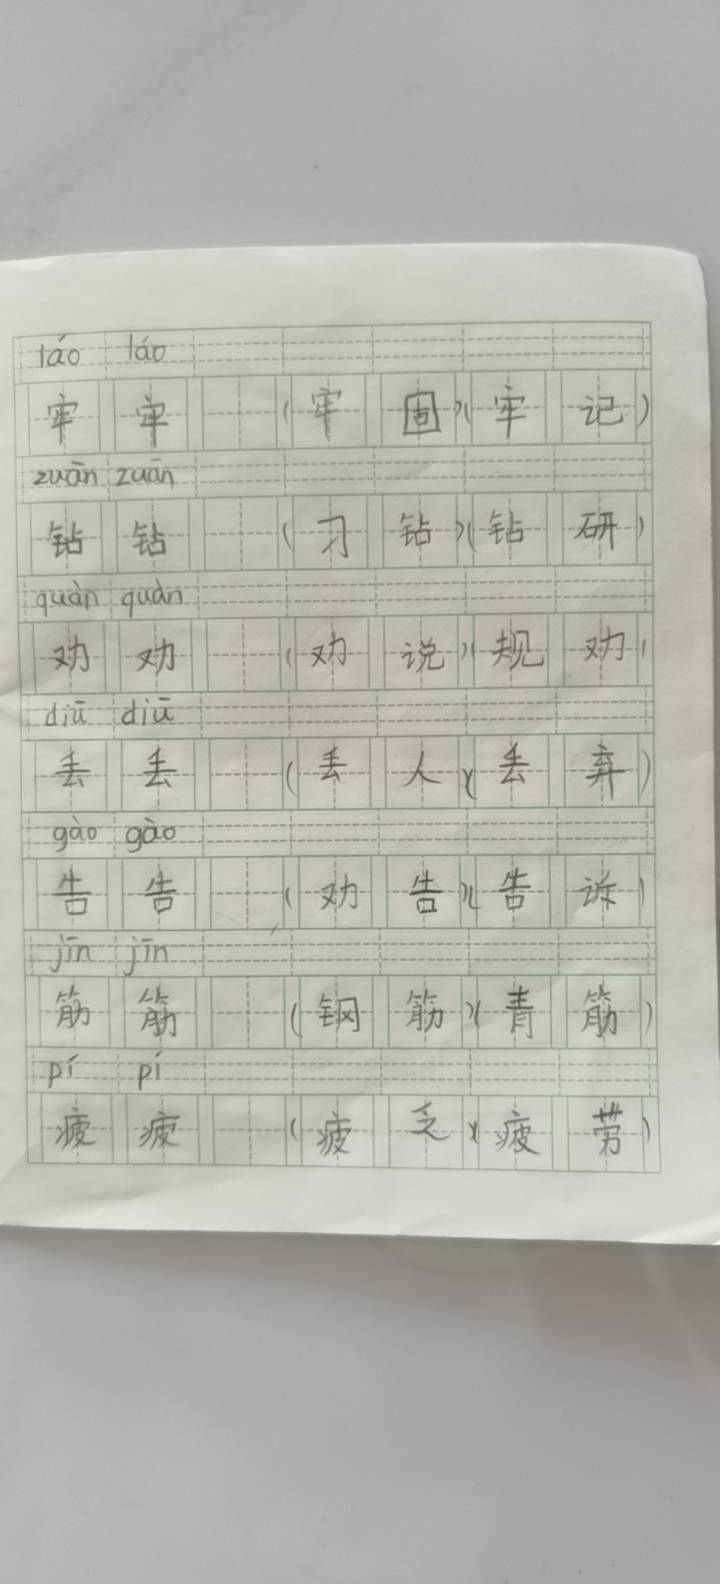 láo láo
牢 牢 (牢固)(牢记)
zuān zuān
钻 钻 (刁钻)(钻研)
quàn quàn
劝 劝 (劝说)(规劝)
diū diū
丢 丢 (丢人)(丢弃)
gào gào
告 告 (劝告)(告诉)
jīn jīn
筋 筋 (钢筋)(青筋)
pí pí
疲 疲 (疲乏)(疲劳)